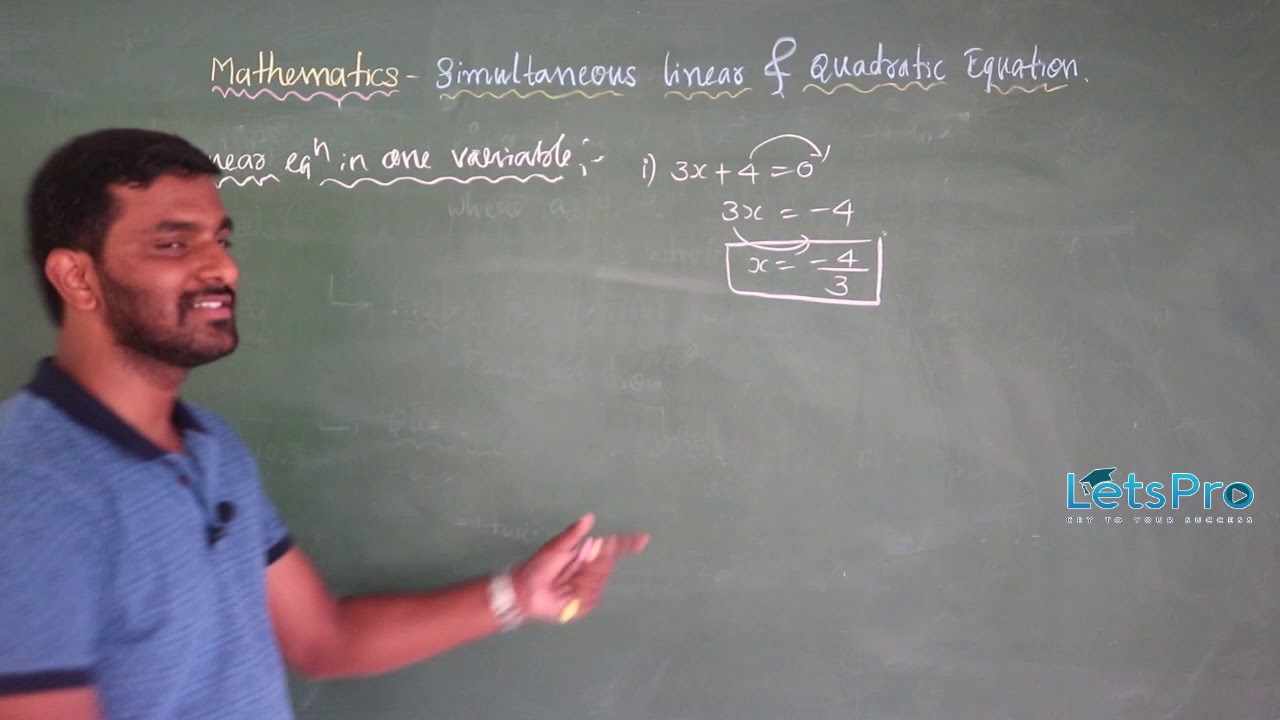 Mathematics - Simultaneous linear & Quadratic Equation.
near eqn in one variable :-
i) 3x + 4 = 0
3x = -4
x = -4/3
LetsPro
KEY TO YOUR SUCCESS